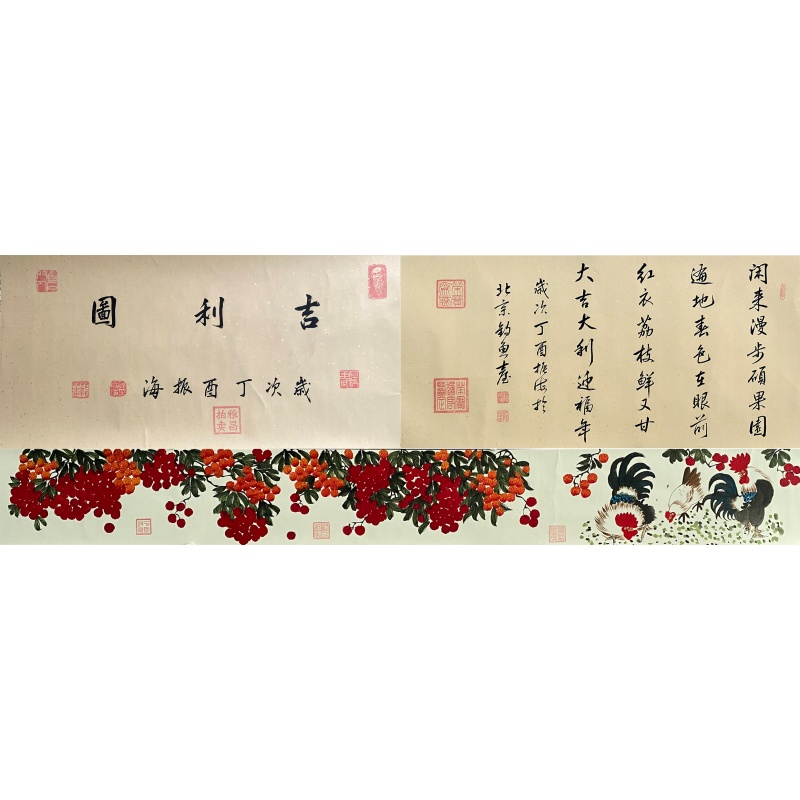 吉利圖
歲次丁酉振海
雅昌拍卖
闲来漫步硕果園
遍地春色在眼前
红衣荔枝鲜又甘
大吉大利迎福年
歲次丁酉振海於
北京钓魚臺